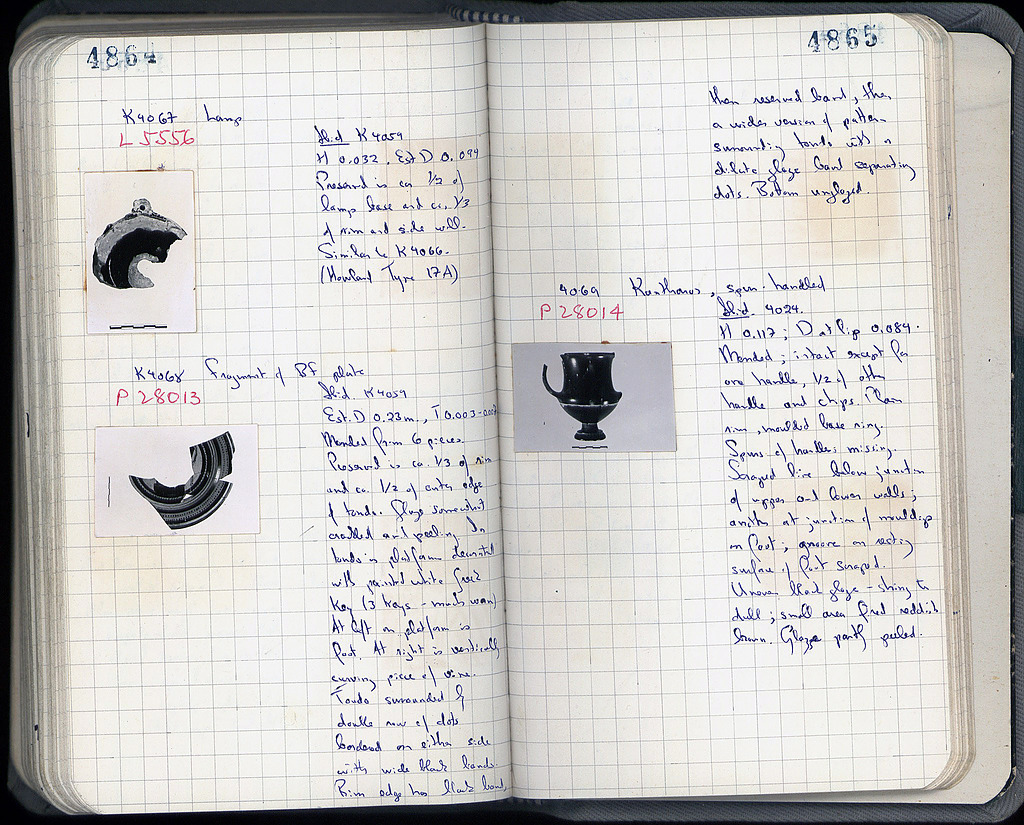 4864
K4067 Lamp
L 5556
Ibid K4059
H 0.032, Est D 0.094
Preserved is ca. 1/2 of
lamp base and ca. 1/3
of rim and side wall.
Similar to K4066.
(Howland Type 17A)
K4068 Fragment of BF plate
P 28013
Ibid. K4059
Est. D 0.23m., T 0.003-0.007
Mended from 6 pieces.
Preserved is ca. 1/3 of rim
and ca. 1/2 of outer edge
of tondo. Glaze somewhat
crackled and peeling. In
tondo is platform decorated
with painted white Greek
Key (3 keys - much worn)
At left on platform is
foot. At right is vertically
curving piece of vine.
Tondo surrounded by
double row of dots
bordered on either side
with wide black bands.
Rim edge has black band,
4865
then reserved band, then
a wider version of pattern
surrounding tondo with a
dilute glaze band separating
dots. Bottom unglazed.
4069 Kantharos, spur-handled
P 28014
Ibid. 4024.
H 0.117; D at lip 0.084.
Mended; intact except for
one handle, 1/2 of other
handle and chips. Plain
rim, moulded base ring.
Spurs of handles missing.
Scraped line below junction
of upper and lower walls;
another at junction of mouldings
on foot; groove on resting
surface of foot scraped.
Uneven black glaze - shiny to
dull; small area fired reddish
brown. Glaze partly peeled.